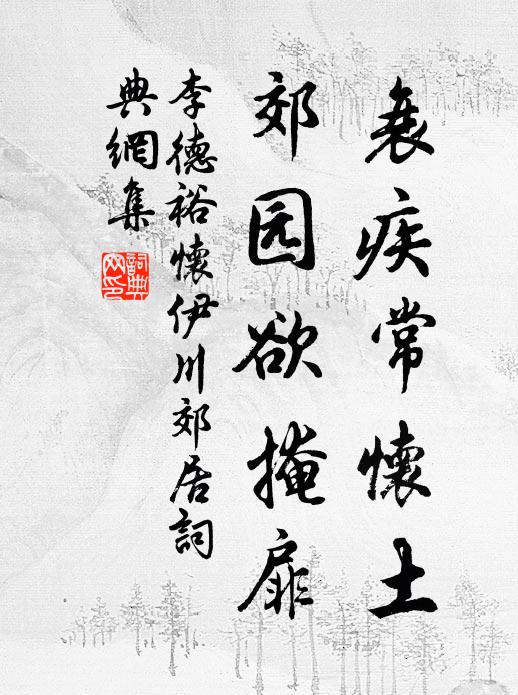 衰疾常懷土
郊园欲掩扉
李德裕懷伊川郊居詞
典網集
詞典
网印